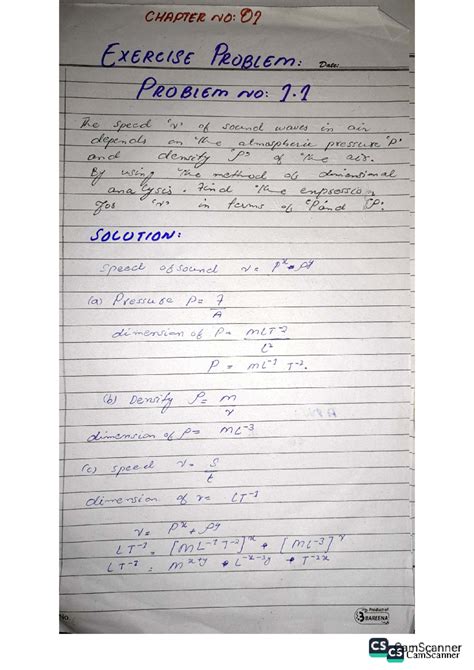 CHAPTER NO: 01
EXERCISE PROBLEM: Date:
PROBLEM NO: 1.1
The speed 'v' of sound waves in air
depends on the atmospheric pressure 'P'
and density 'ρ' of the air.
By using the method of dimensional
analysis. Find the expression
for 'v' in terms of 'P' and 'ρ'.
SOLUTION:
Speed of sound v = Pˣ * ρʸ
(a) Pressure P = F/A
dimension of P = MLT⁻²/L²
P = ML⁻¹ T⁻².
(b) Density ρ = m/v
dimension of ρ = ML⁻³
(c) speed v = S/t
dimension of v = LT⁻¹
v = Pˣ * ρʸ
LT⁻¹ = [ML⁻¹T⁻²]ˣ * [ML⁻³]ʸ
LT⁻¹ = Mˣ⁺ʸ * L⁻ˣ⁻³ʸ * T⁻²ˣ
No.
Product of
BAREENA
CS CamScanner
CS CamScanner